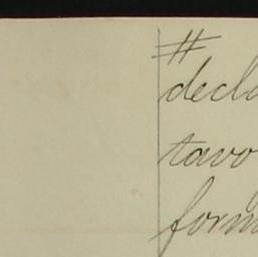 #
decla
tavo
form